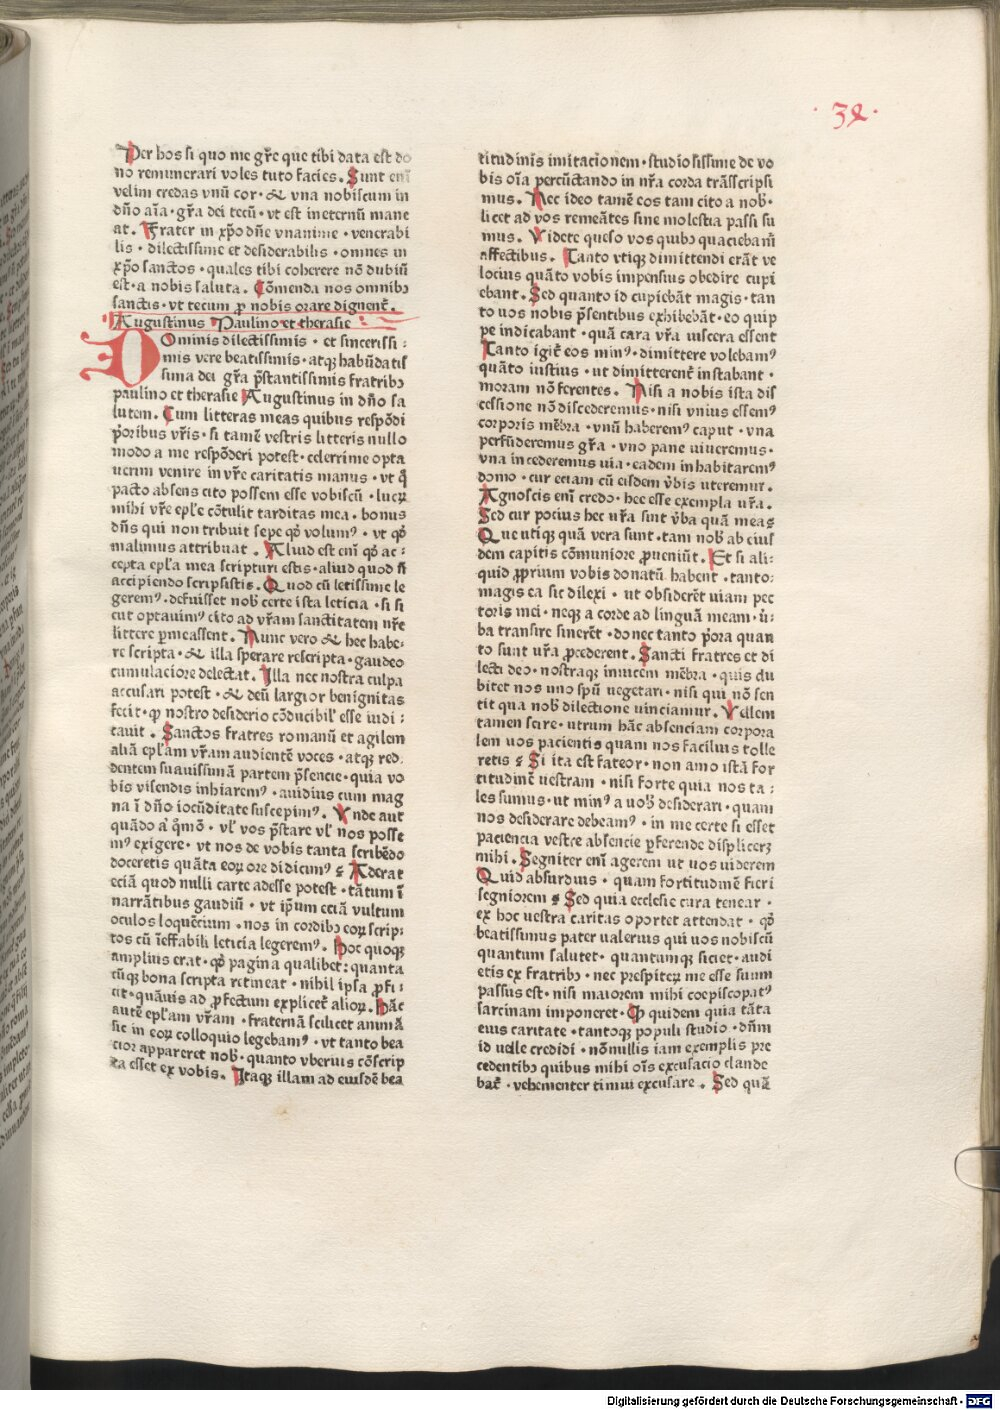 ·38·
Per hos si quo me gr̄e que tibi data est do
no remunerari voles tuto facies. Sunt enī
velim credas vnū cor· & vna nobiscum in
dn̄o aīa· gr̄a dei tecū· vt est ineternū mane
at. Frater in xp̄o dn̄e vnanime· venerabi
lis· dilectissime et desiderabilis· omnes in
xp̄o sanctos· quales tibi coherere nō dubiū
est· a nobis saluta. Cōmenda nos omnibꝫ
sanctis· vt tecum ꝓ nobis orare dignent᷑.
Augustinus Paulino et therasie
DOminis dilectissimis· et sincerissi:
mis vere beatissimis· atqꝫ habūdatis
sima dei gr̄a p̄stantissimis fratribꝫ
paulino et therasie Augustinus in dn̄o sa
lutem. Cum litteras meas quibus respōdi
p̄oribus vr̄is· si tamē vestris litteris nullo
modo a me respōderi potest· celerrime opta
uerim venire in vr̄e caritatis manus· vt q̄
pacto absens cito possem esse vobiscū· lucꝝ
mihi vr̄e epl̄e cōtulit tarditas mea. bonus
dn̄s qui non tribuit sepe qꝫ volumꝰ· vt qꝫ
malimus attribuat. Aliud est enī qꝫ ac:
cepta epl̄a mea scripturi estis· aliud quod n̄
accipiendo scripsistis. Quod cū letissime le
geremꝰ· defuisset nob̄ certe ista leticia· si si
cut optauimꝰ cito ad vr̄am sanctitatem nr̄e
littere p̱meassent. Nunc vero & hec habe:
re scripta· & illa sperare rescripta· gaudeo
cumulaciore delectat. Illa nec nostra culpa
accusari potest· & deū largior benignitas
fecit· qꝫ nostro desiderio cōducibil̓ esse iudi:
cauit. Sanctos fratres romanū et agilem
aliā epl̄am vr̄am audientē voces· atqꝫ red
dentem suauissimā partem p̄sencie· quia vo
bis visendis inhiaremꝰ· auidius cum mag
na ī dn̄o iocūditate suscepimꝰ. Vnde aut
quādo a' q̄mō· vl̓ vos p̄stare vl̓ nos posse
mꝰ exigere· vt nos de vobis tanta scribēdo
doceretis quāta eoꝝ ore didicimꝰ? Aderat
eciā quod nulli carte adesse potest· tātum ī
narrātibus gaudiū· vt ip̄um eciā vultum
oculos loquēcium· nos in cordibꝫ eoꝝ scrip:
tos cū īeffabili leticia legeremꝰ. Hoc quoqꝫ
amplius erat· qꝫ pagina qualibet: quanta
cūqꝫ bona scripta retineat· nihil ipsa ꝓfi:
cit· quāuis ad ꝓfectum explicet᷑ alioꝝ. Hāc
autē epl̄am vr̄am· fraternā scilicet animā
sic in eoꝝ colloquio legebamꝰ· vt tanto bea
cior appareret nob̄· quanto vberius cōscrip
ta esset ex vobis. Itaqꝫ illam ad eiusdē bea
titudinis imitacionem· studiosissime de vo
bis oīa p̱cūctando in nr̄a corda trāsscripsi
mus. Nec ideo tamē eos tam cito a nob̄·
licet ad vos remeātes sine molestia passi su
mus. Videte queso vos quibꝫ quaciebam̄
affectibus. Tanto vtiqꝫ dimittendi erāt ve
locius quāto vobis impensius obedire cupi
ebant. Sed quanto id cupiebāt magis· tan
to uos nobis p̄sentibus exhibebāt· eo quip
pe indicabant· quā cara vr̄a viscera essent
Tanto igit᷑ eos minꝰ· dimittere volebamꝰ
quāto iustius· ut dimitterent᷑ instabant·
moram nō ferentes. Nisi a nobis ista dis
cessione nō discederemus· nisi vnius essemꝰ
corporis mēbra· vnū haberemꝰ caput· vna
perfūderemus gr̄a· vno pane uiueremus·
vna incederemus uia· eadem inhabitaremꝰ
domo· cur eciam cū eisdem v̄bis uteremur.
Agnoscis enī credo· hec esse exempla ur̄a.
Sed cur pocius hec ur̄a sint v̄ba quā meas
Que utiqꝫ quā vera sunt· tam nob̄ ab eius
dem capitis cōmuniore ꝓueniūt. Et si ali·
quid ꝓprium vobis donatū habent· tanto:
magis ea sic dilexi· ut obsiderēt uiam pec
toris mei· neqꝫ a corde ad linguā meam· ū:
ba transire sinerēt· donec tanto p̄ora quan
to sunt ur̄a ꝓcederent. Sancti fratres et di
lecti deo· nostraqꝫ inuicem mēbra· quis du
bitet nos uno sp̄u uegetari· nisi qui nō sen
tit qua nob̄ dilectione uinciamur. Vellem
tamen scire· utrum hāc absenciam corpora
lem uos pacientis quam nos facilius tolle
retis? Si ita est fateor· non amo istā for
titudinē uestram· nisi forte quia nos ta:
les sumus· ut minꝰ a uob̄ desiderari· quam
nos desiderare debeamꝰ· in me certe si esset
paciencia vestre absencie p̱ferende displiceꝝ
mihi. Segniter enī agerem ut uos uiderem
Quid absurdius· quam fortitudinē fieri
segniorem? Sed quia ecclesie cura tenear·
ex hoc uestra caritas oportet attendat· qꝫ
beatissimus pater ualerius qui uos nobiscū
quantum salutet· quantumqꝫ siciet· audi
etis ex fratribꝫ· nec presꝓiterꝝ me esse suum
passus est· nisi maiorem mihi coepiscopatꝰ
sarcinam imponeret· Qꝫ quidem quia tāta
eius caritate· tantoqꝫ populi studio· dn̄m
id uelle credidi· nōnullis iam exemplis pre
cedentibꝫ quibus mihi oīs excusacio claude
bat᷑· vehementer timui excusare. Sed quā
Digitalisierung gefördert durch die Deutsche Forschungsgemeinschaft · DFG